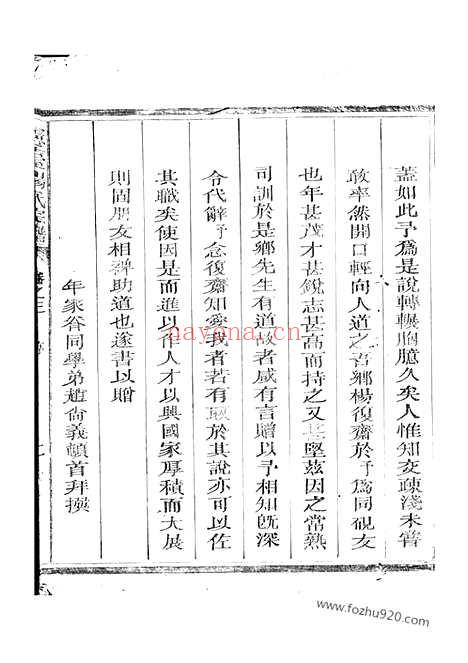 蓋如此予爲是說轉輾胸臆久矣人惟知交疎淺未嘗
敢率然開口輕向人道之吾鄉楊復齋於予爲同硯友
也年甚茂才甚銳志甚高而持之又甚堅茲因之常熟
司訓於是鄉先生有道故者咸有言贈以予相知旣深
令代辭予念復齋知愛我者若有取於其說亦可以佐
其職矣使因是而進以育人才以興國家厚積而大展
則固朋友相裨助道也遂書以贈
年家眷同學弟趙尙義頓首拜撰
氏宗譜
nayona.cn
www.fozhu920.com